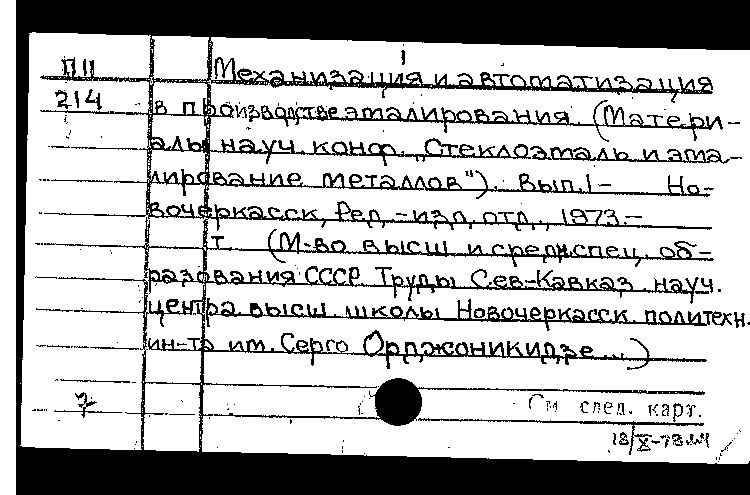 1
П11 Механизация и автоматизация
214 в производстве эмалирования. (Матери-
алы науч. конф. „Стеклоэмаль и эма-
лирование металлов"). Вып.1- Но-
вочеркасск, Ред.-изд. отд., 1973.-
т. (М-во высш. и средн. спец. об-
разования СССР. Труды Сев-Кавказ. науч.
центра высш. школы Новочеркасск. политехн.
ин-та им. Серго Орджоникидзе...)
См след. карт.